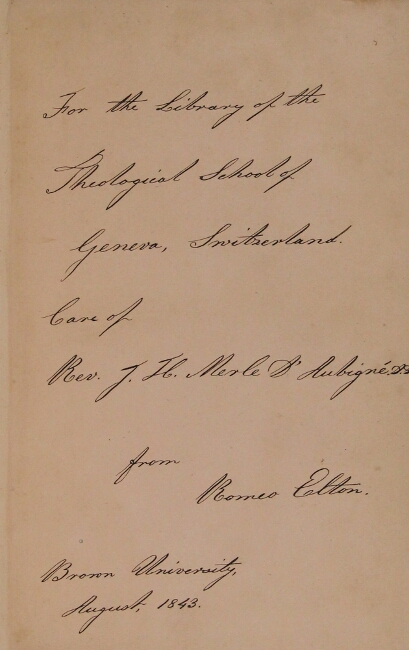 For the Library of the
Theological School of
Geneva, Switzerland.
Care of
Rev. J. H. Merle D'Aubigné, D.D.
from
Romeo Elton.
Brown University,
August, 1843.